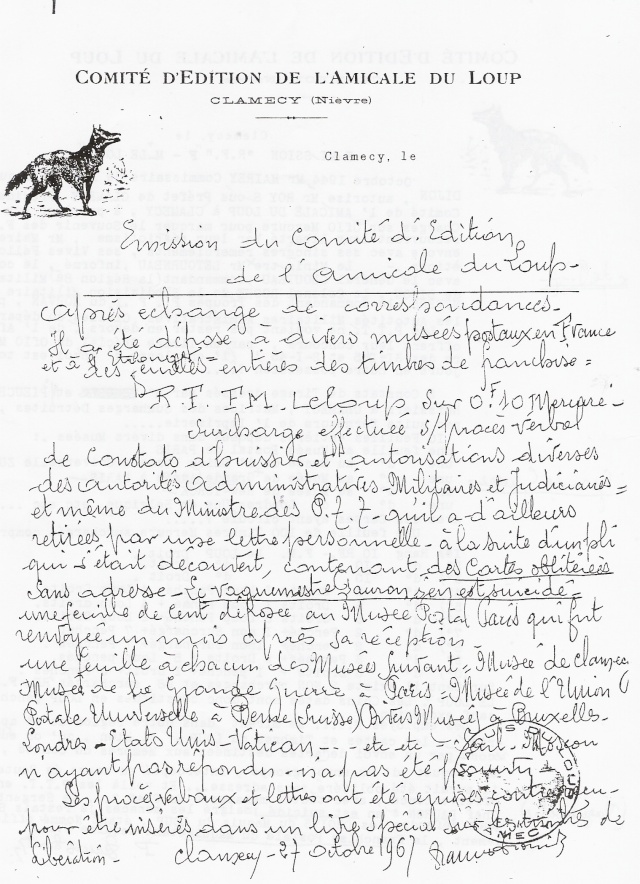 COMITÉ D'EDITION DE L'AMICALE DU LOUP
CLAMECY (Nièvre)
Clamecy, le
Emission du Comité d'Edition
de l'Amicale du Loup-
Après échange de correspondances-
Il a été déposé à divers musées postaux en France
et à l'Etranger-
des feuilles entières des timbres de franchise=
R.F. F.M. Leloup, sur 0.F10 Mercure-
Surcharge effectuée s/ Procès Verbal
de Constats d'huissier et autorisations diverses
des autorités Administratives. Militaires et Judiciaires=
et même du Ministre des P.T.T- qu'il a-d'ailleurs
retirées par une lettre personnelle- à la suite d'un pli
qui s'était découvert, contenant des Cartes oblitérées
Sans adresse- Le vaguemestre s'en est suicidé-
une feuille de Cent déposée au Musée Postal Paris qui fut
renvoyée un mois après sa réception
une feuille à chacun des Musées Suivant= Musée de Clamecy
Musée de la Grande Guerre à Paris= Musée de l'Union
Postale Universelle à Berne (Suisse) Divers Musées à Bruxelles-
Londres- Etats Unis- Vatican- - etc etc - Seul- Moscou
n'ayant pas répondu- n'a pas été
Les procès verbaux et lettres ont été
pour être insérés dans un livre Spécial sur les timbres de
Libération- Clamecy-27 octobre 1967